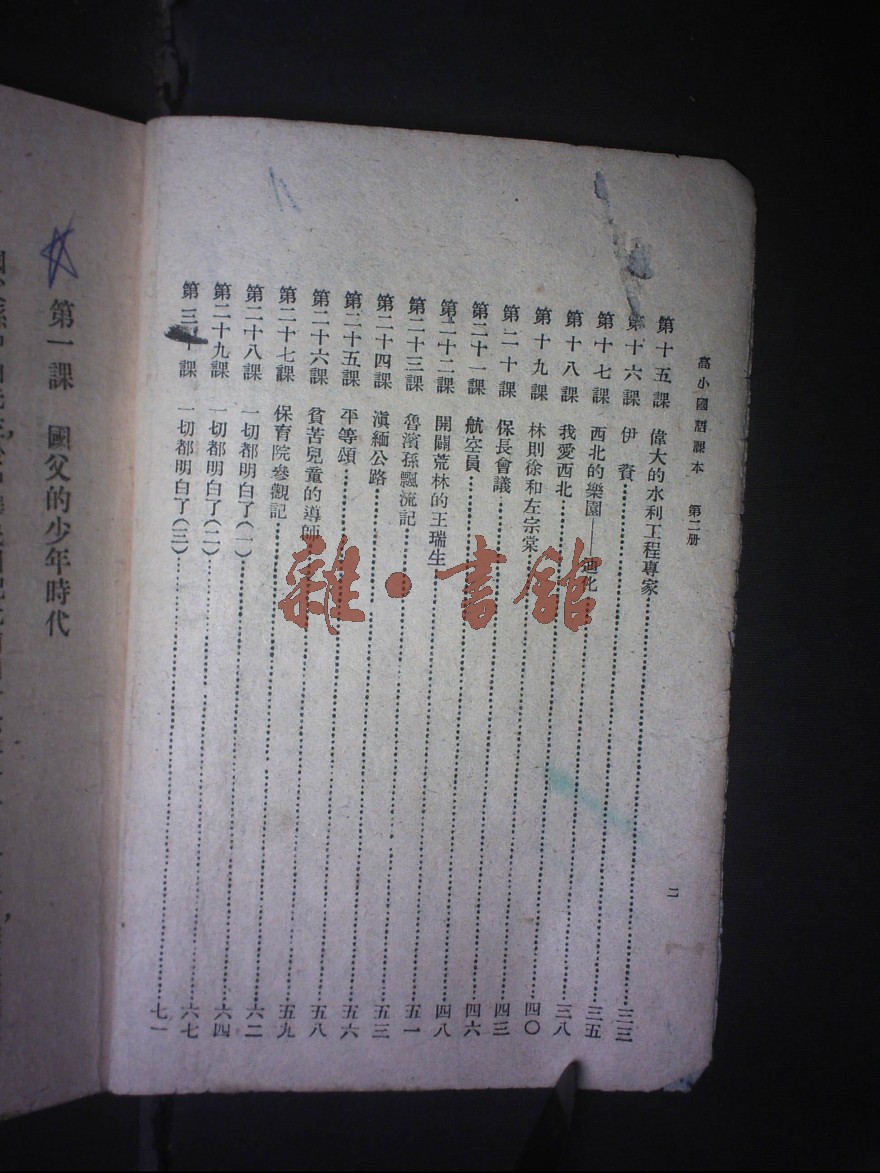 高小國語課本　第二册　二
第十五課　偉大的水利工程專家……三三
第十六課　伊……三五
第十七課　西北的樂園——迪化……三八
第十八課　我愛西北……四〇
第十九課　林則徐和左宗棠……四三
第二十課　保長會議……四六
第二十一課　航空員……四八
第二十二課　開闢荒林的王瑞生……五一
第二十三課　魯濱孫飄流記……五三
第二十四課　滇緬公路……五六
第二十五課　平等頌……五八
第二十六課　貧苦兒童的導師……五九
第二十七課　保育院參觀記……六二
第二十八課　一切都明白了(一)……六四
第二十九課　一切都明白了(二)……六七
第三十課　一切都明白了(三)……七一
第一課　國父的少年時代
雜·書館